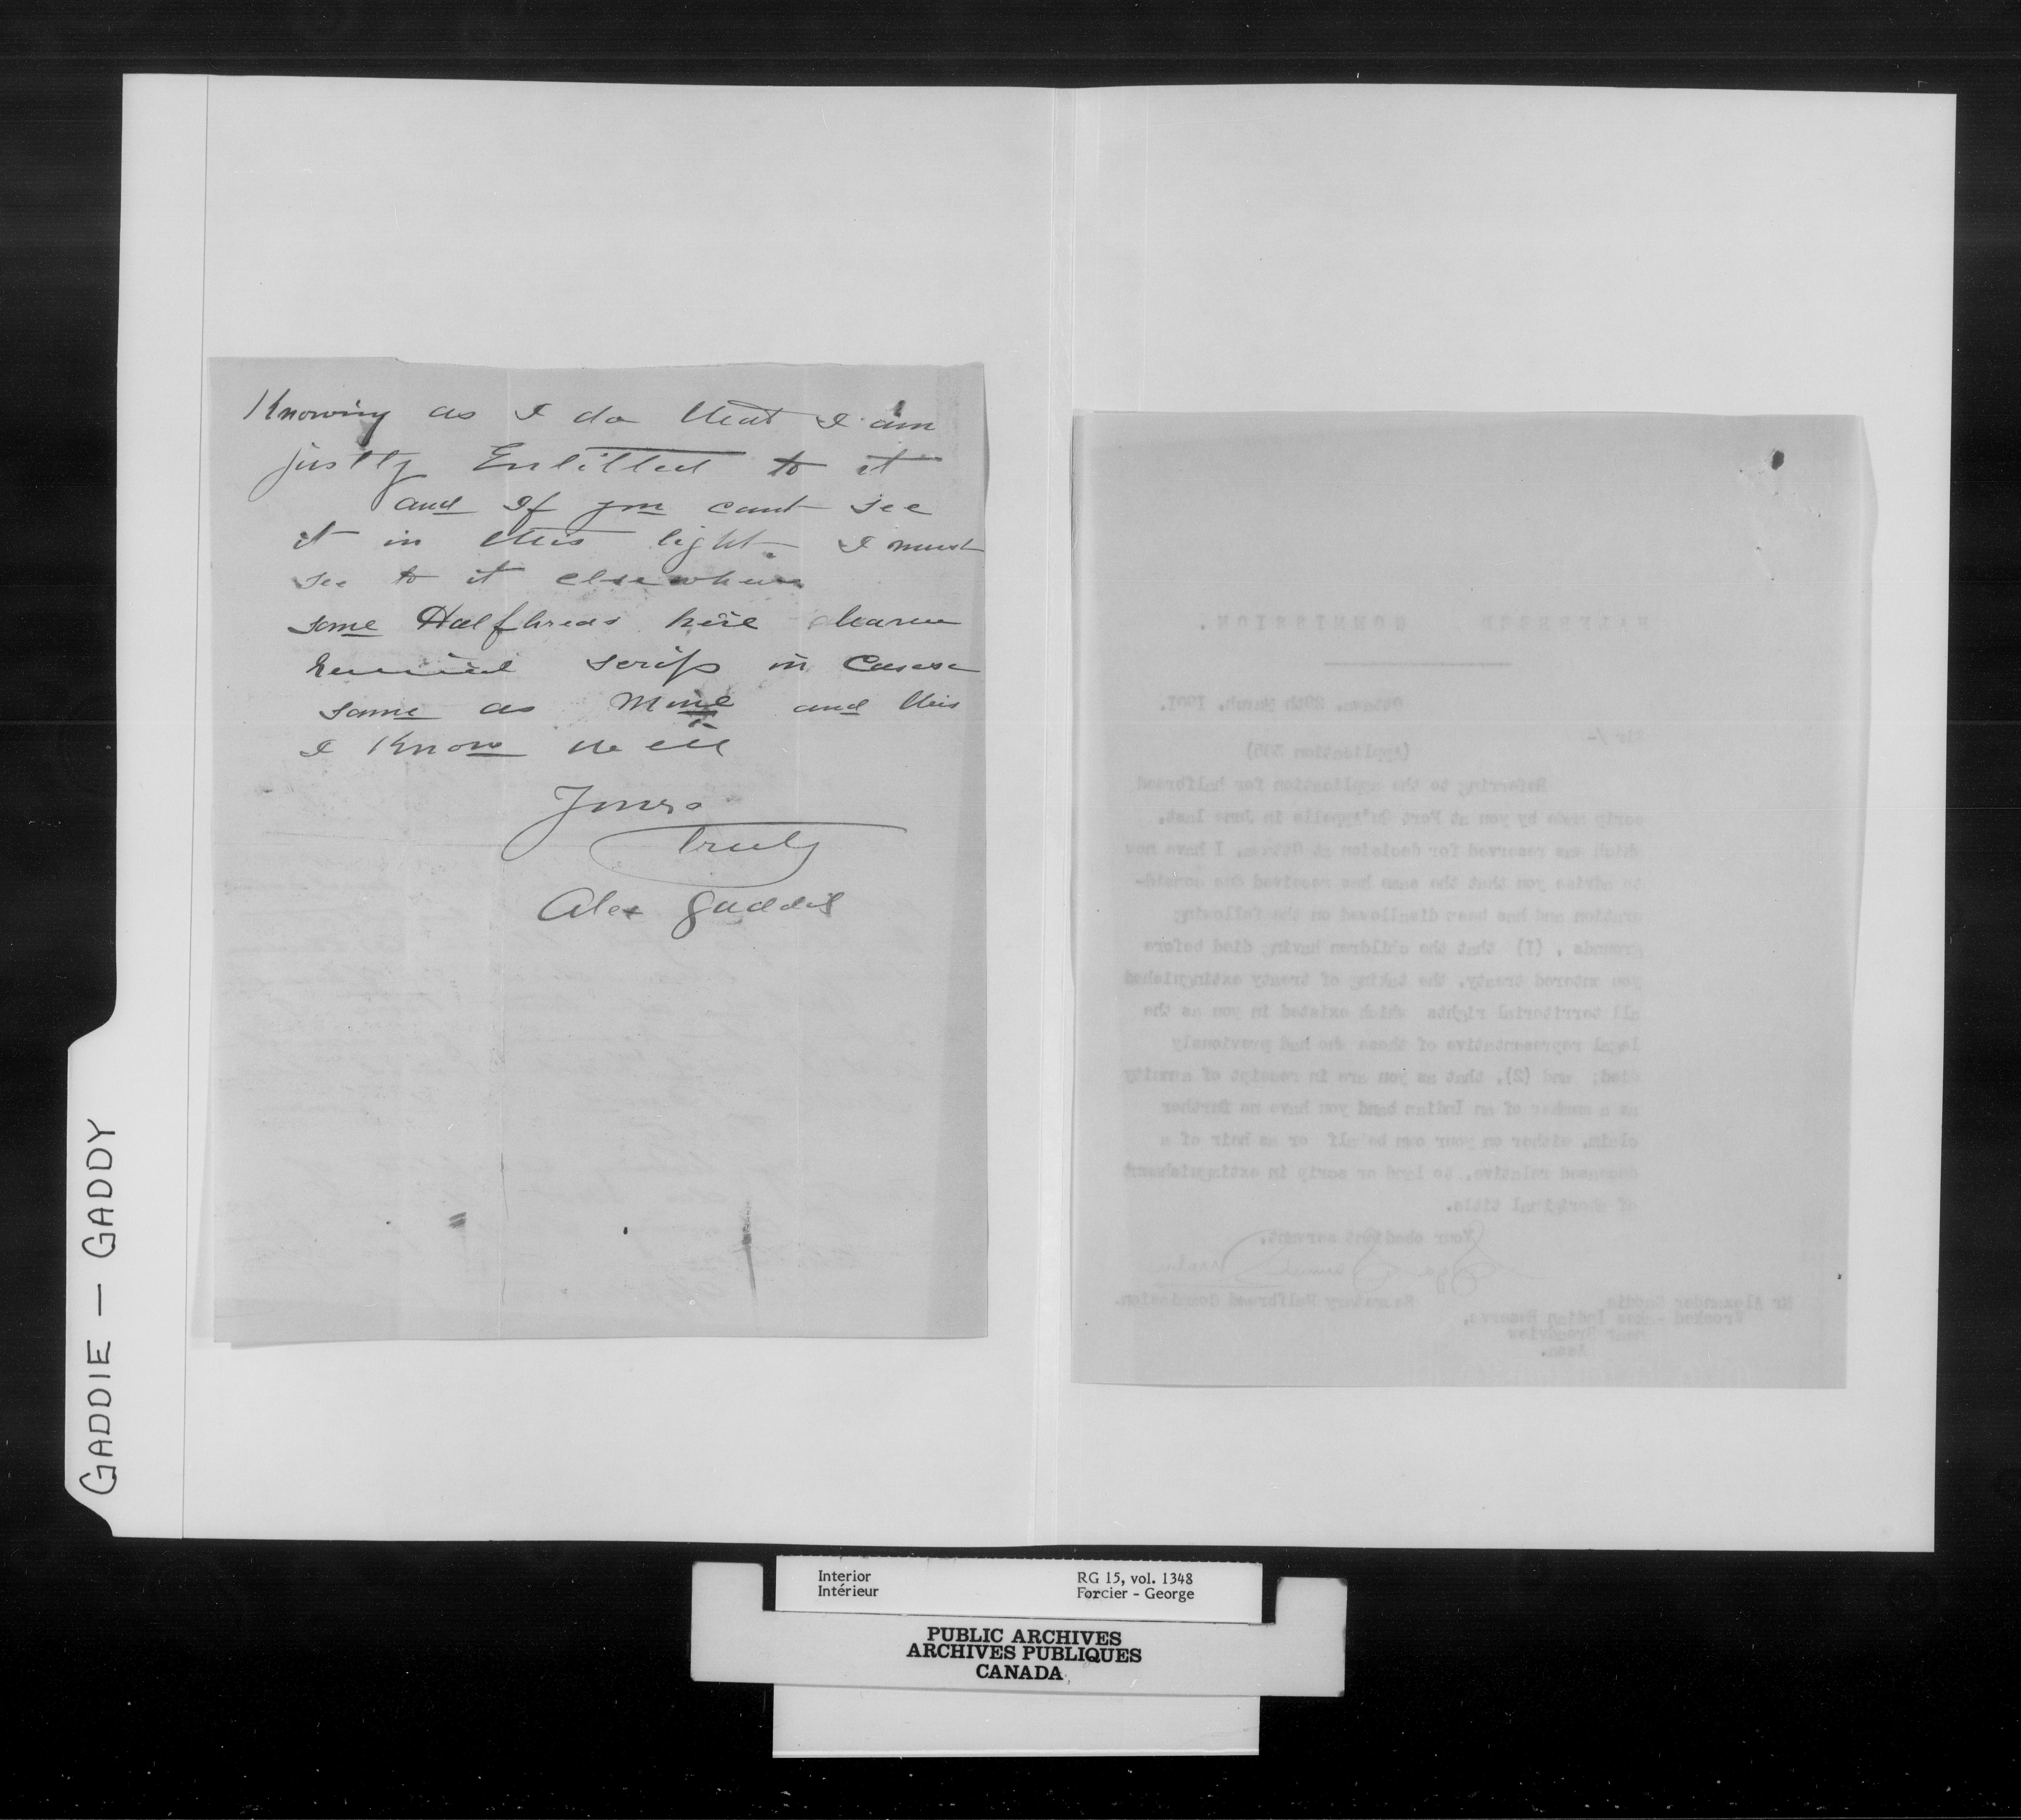 Knowing as I do that I am
justly Entitled to it
and If you cant see
it in this light. I must
see to it elsewhere
some Halfbreas here
scrip in Casese
same as Mine and this
I Know well
Yours
Truly
Alex Gaddie
HALFBREED COMMISSION.
Ottawa, 29th March, 1901.
Sir /-
(Application 305)
Referring to the application for halfbreed
scrip made by you at Fort Qu'Appelle in June last,
which was reserved for decision at Ottawa, I have now
to advise you that the same has received due consid-
eration and has been disallowed on the following
grounds, (1) that the children having died before
you entered treaty, the taking of treaty extinguished
all territorial rights which existed in you as the
legal representative of those who had previously
died; and (2), that as you are in receipt of annuity
as a member of an Indian band you have no further
claim, either on your own behalf or as heir of a
deceased relative, to land or scrip in extinguishment
of aboriginal title.
Your obedient servant,
Secretary Halfbreed Commission.
Mr Alexander Gaddie
Crooked Lakes Indian Reserve,
near Broadview
Assa.
GADDIE — GADDY
Interior RG 15, vol. 1348
Intérieur Forcier - George
PUBLIC ARCHIVES
ARCHIVES PUBLIQUES
CANADA